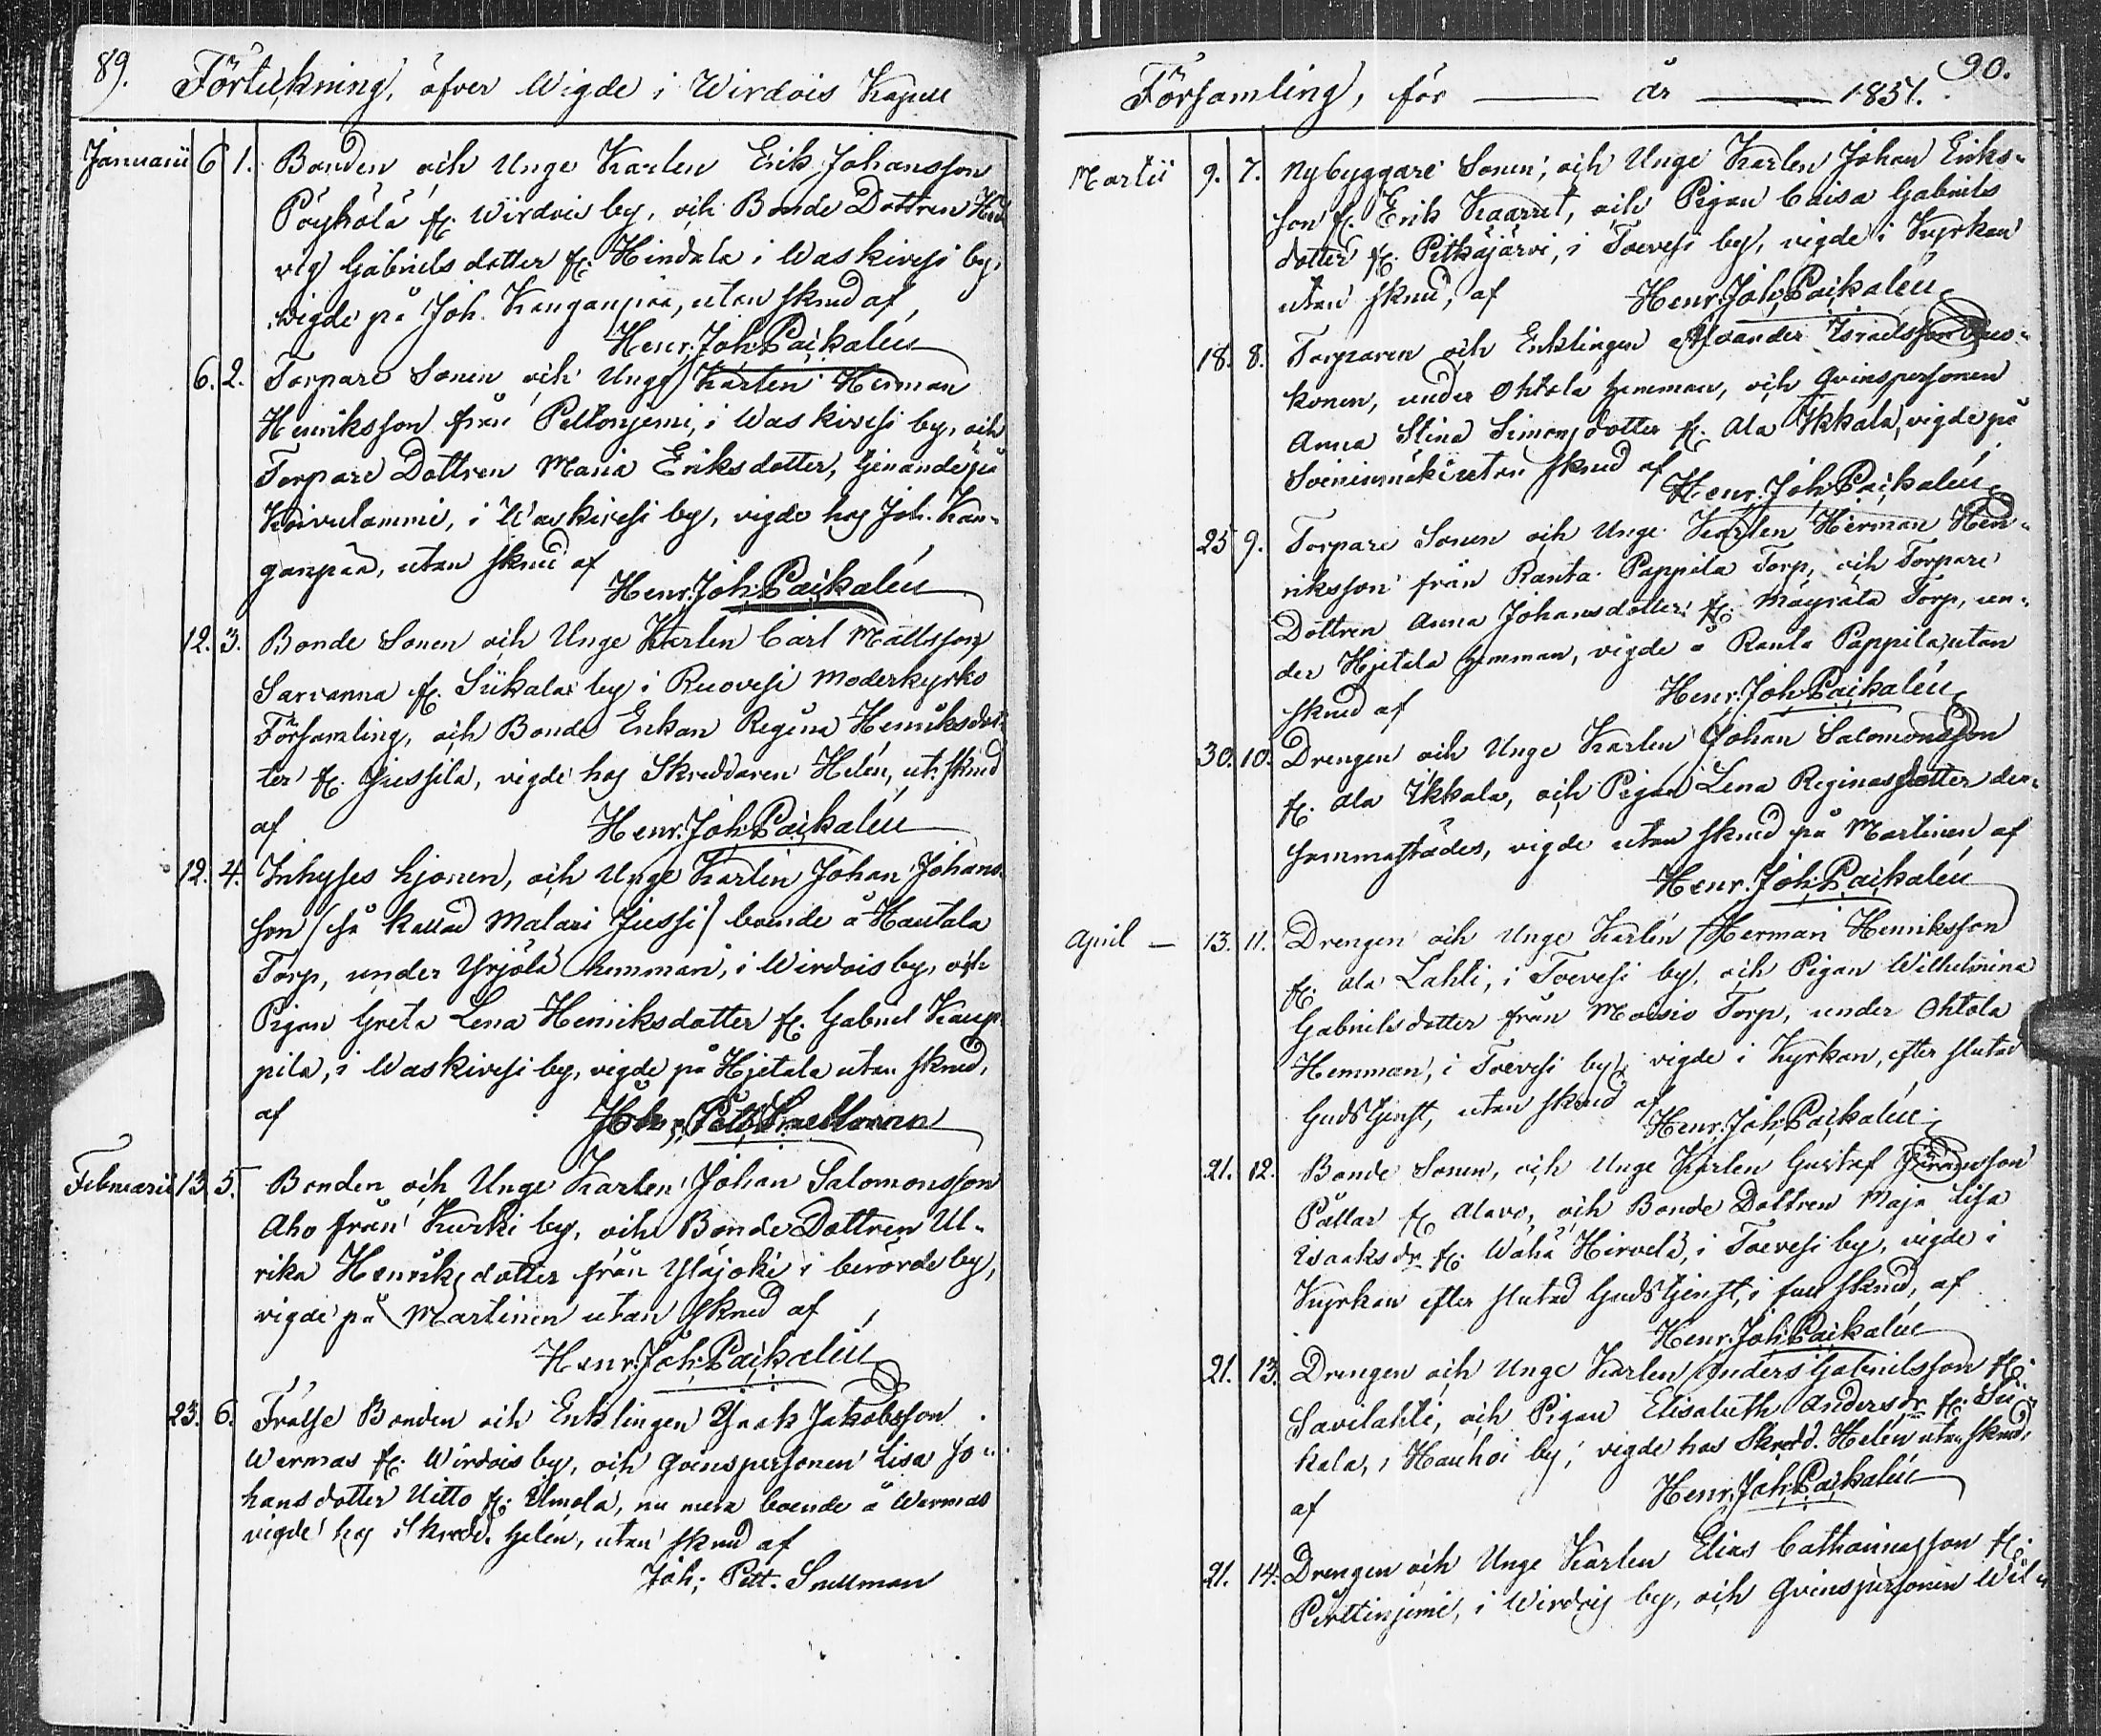 89. Förteckning, öfver Wigde i Wirdois Kapell
Januarii 6 1. Bonden och Unge Karlen Erik Johansson
Pöyhölä fr. Wirdois by, och Bonde Dottren Hed
vig Gabriels dotter fr. Hindala i Waskivesi by,
vigde på Joh. Kanganpää, utan skrud af,
Henr. Joh. Paikalén
6. 2. Torpare Sonen och Unge Karlen Herman
Henriksson från Peltonjemi, i Waskivesi by, och
Torpare Dottren Maria Eriksdotter, tjenande på
Koivulammi, i Waskivesi by, vigde hos Joh. Kan-
ganpää, utan skrud af
Henr. Joh. Paikalén
12. 3. Bonde Sonen och Unge Karlen Carl Mattsson
Sarvanna fr. Siikalas by i Ruovesi Moderkyrko
Församling, och Bonde Enkan Regina Henriksdot-
ter fr. Jussila, vigde hos Skreddaren Helén, ut. skrud
af Henr. Joh. Paikalén
12. 4. Inhyses hjonen, och Unge Karlen Johan Johans-
son (så kallad Malari Jussi) boende å Hautala
Torp, under Yrjölä hemman, i Wirdois by, och
Pigan Greta Lena Henriksdotter fr. Gabriel Kaup
pila, i Waskivesi by, vigde på Hjetala utan skrud,
af Joh. Pett. Snellman
Februarii 13 5. Bonden och Unge Karlen Johan Salomonsson
Aho från Kurki by, och Bonde Dottren Ul-
rika Henriksdotter från Yläjoki i berörde by,
vigde på Martinen utan skrud af
Henr. Joh. Paikalén
23. 6. Frälse Bonden och Enklingen Isak Jakobsson
Wermas fr. Wirdois by, och Qvinspersonen Lisa Jo-
hansdotter Uitto fr. Ilmola, nu mera boende å Wermas
vigde hos Skredd. Helén, utan skrud af
Joh. Pett. Snellman
Församling, för år 1851. 90.
Martii 9. 7. Nybyggare Sonen, och Unge Karlen Johan Eriks-
son fr. Erik Kaarret, och Pigan Caisa Gabriels
dotter fr. Pitkäjärvi, i Toivesi by, vigde i Kyrkan
utan skrud, af Henr. Joh. Paikalén
18. 8. Torparen och Enklingen Alexander Israelsson
konen, under Ohtola hemman, och Qvinspersonen
Anna Stina Simonsdotter fr. Ala Ikkala, vigde på
Soininmäki utan skrud af
Henr. Joh. Paikalén
25 9. Torpare Sonen och Unge Karlen Herman Hen-
riksson från Ranta Pappila Torp, och Torpare
Dottren Anna Johansdotter fr. Mäyrälä Torp, un-
der Hjetala hemman, vigde å Ranta Pappila, utan
skrud af Henr. Joh. Paikalén
30. 10. Drengen och Unge Karlen Johan Salomonsson
fr. Ala Ikkala, och Pigan Lena Reginasdotter der-
sammastädes, vigde utan skrud på Martinen, af
Henr. Joh. Paikalén
April — 13. 11. Drengen och Unge Karlen Herman Henriksson
fr. Ala Lahti, i Toivesi by, och Pigan Wilhelmina
Gabrielsdotter från Moisio Torp, under Ohtola
Hemman, i Toivesi by, vigde i Kyrkan, efter slutad
Gudstjenst, utan skrud af
Henr. Joh. Paikalén
21. 12. Bonde Sonen, och Unge Karlen Gustaf
Pällar fr. Alavo, och Bonde Dottren Maja Lisa
Isaksdr fr. Wähä Hirvelä, i Toivesi by, vigde i
Kyrkan efter slutad Gudstjenst, i full skrud, af
Henr. Joh. Paikalén
21. 13. Drengen och Unge Karlen Anders Gabrielsson fr.
Savilahti, och Pigan Elisabeth Andersdr fr. Sii-
kala, i Hauhoi by, vigde hos Skredd. Helén utan skrud,
af Henr. Joh. Paikalén
21. 14. Drengen och Unge Karlen Elias Catharinasson fr.
Perttinjemi, i Wirdois by, och Qvinspersonen Wil-